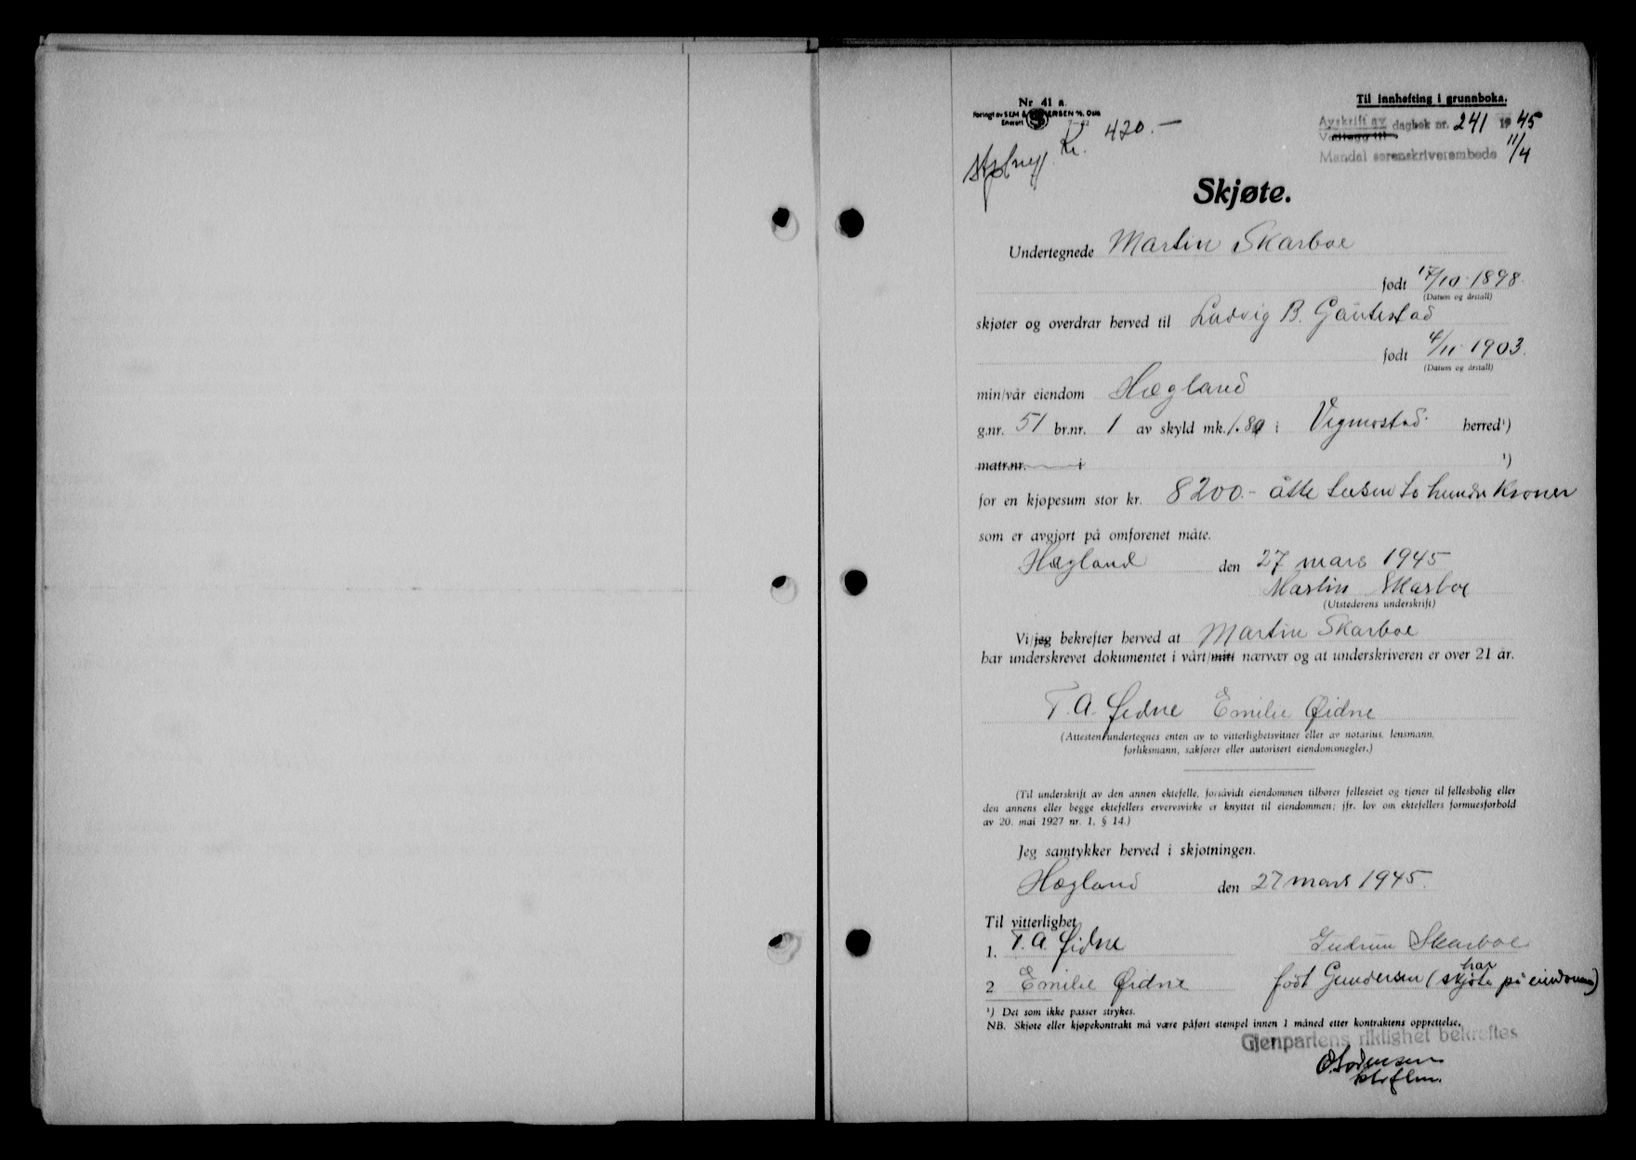 Nr. 41 a.
Til innhefting i grunnboka.
Forlagt av SEM & STENERSEN A/S, Oslo
Enerett
Kr. 420.-
Avskrift av dagbok nr. 241 1945
Vedlegg til
Mandal sorenskriverembede 11/4
Skjøte.
Undertegnede Martin Skarboe
født 17/10-1898.
(Datum og årstall)
skjøter og overdrar herved til Ludvig B. Gautestad
født 4/11-1903.
(Datum og årstall)
min/vår eiendom Hægland
g.nr. 51 br.nr. 1 av skyld mk. 1.80 i Vigmostad herred¹)
matr.nr. i ¹)
for en kjøpesum stor kr. 8200.- åtte tusen to hundre kroner
som er avgjort på omforenet måte.
Hægland den 27 mars 1945
Martin Skarboe
(Utstederens underskrift)
Vi/jeg bekrefter herved at Martin Skarboe
har underskrevet dokumentet i vårt/mitt nærvær og at underskriveren er over 21 år.
T. A. Øidne Emilie Øidne
(Attesten undertegnes enten av to vitterlighetsvitner eller av notarius, lensmann,
forliksmann, sakfører eller autorisert eiendomsmegler.)
(Til underskrift av den annen ektefelle, forsåvidt eiendommen tilhører felleseiet og tjener til fellesbolig eller
den annens eller begge ektefellers ervervsvirke er knyttet til eiendommen; jfr. lov om ektefellers formuesforhold
av 20. mai 1927 nr. 1, § 14.)
Jeg samtykker herved i skjøtningen.
Hægland den 27 mars 1945.
Til vitterlighet
1. T. A. Øidne Gudrun Skarboe
2 Emilie Øidne født Gundersen (har skjøte på eiendommen)
¹) Det som ikke passer strykes.
NB. Skjøte eller kjøpekontrakt må være påført stempel innen 1 måned etter kontraktens opprettelse.
Gjenpartens riktighet bekreftes
O. Sørensen